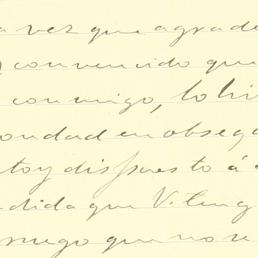 a vez que agrade
convencido que
conmigo, lo hi
ondad en obseq
toy dispuesto á
dida que V. teng
ruego que no se